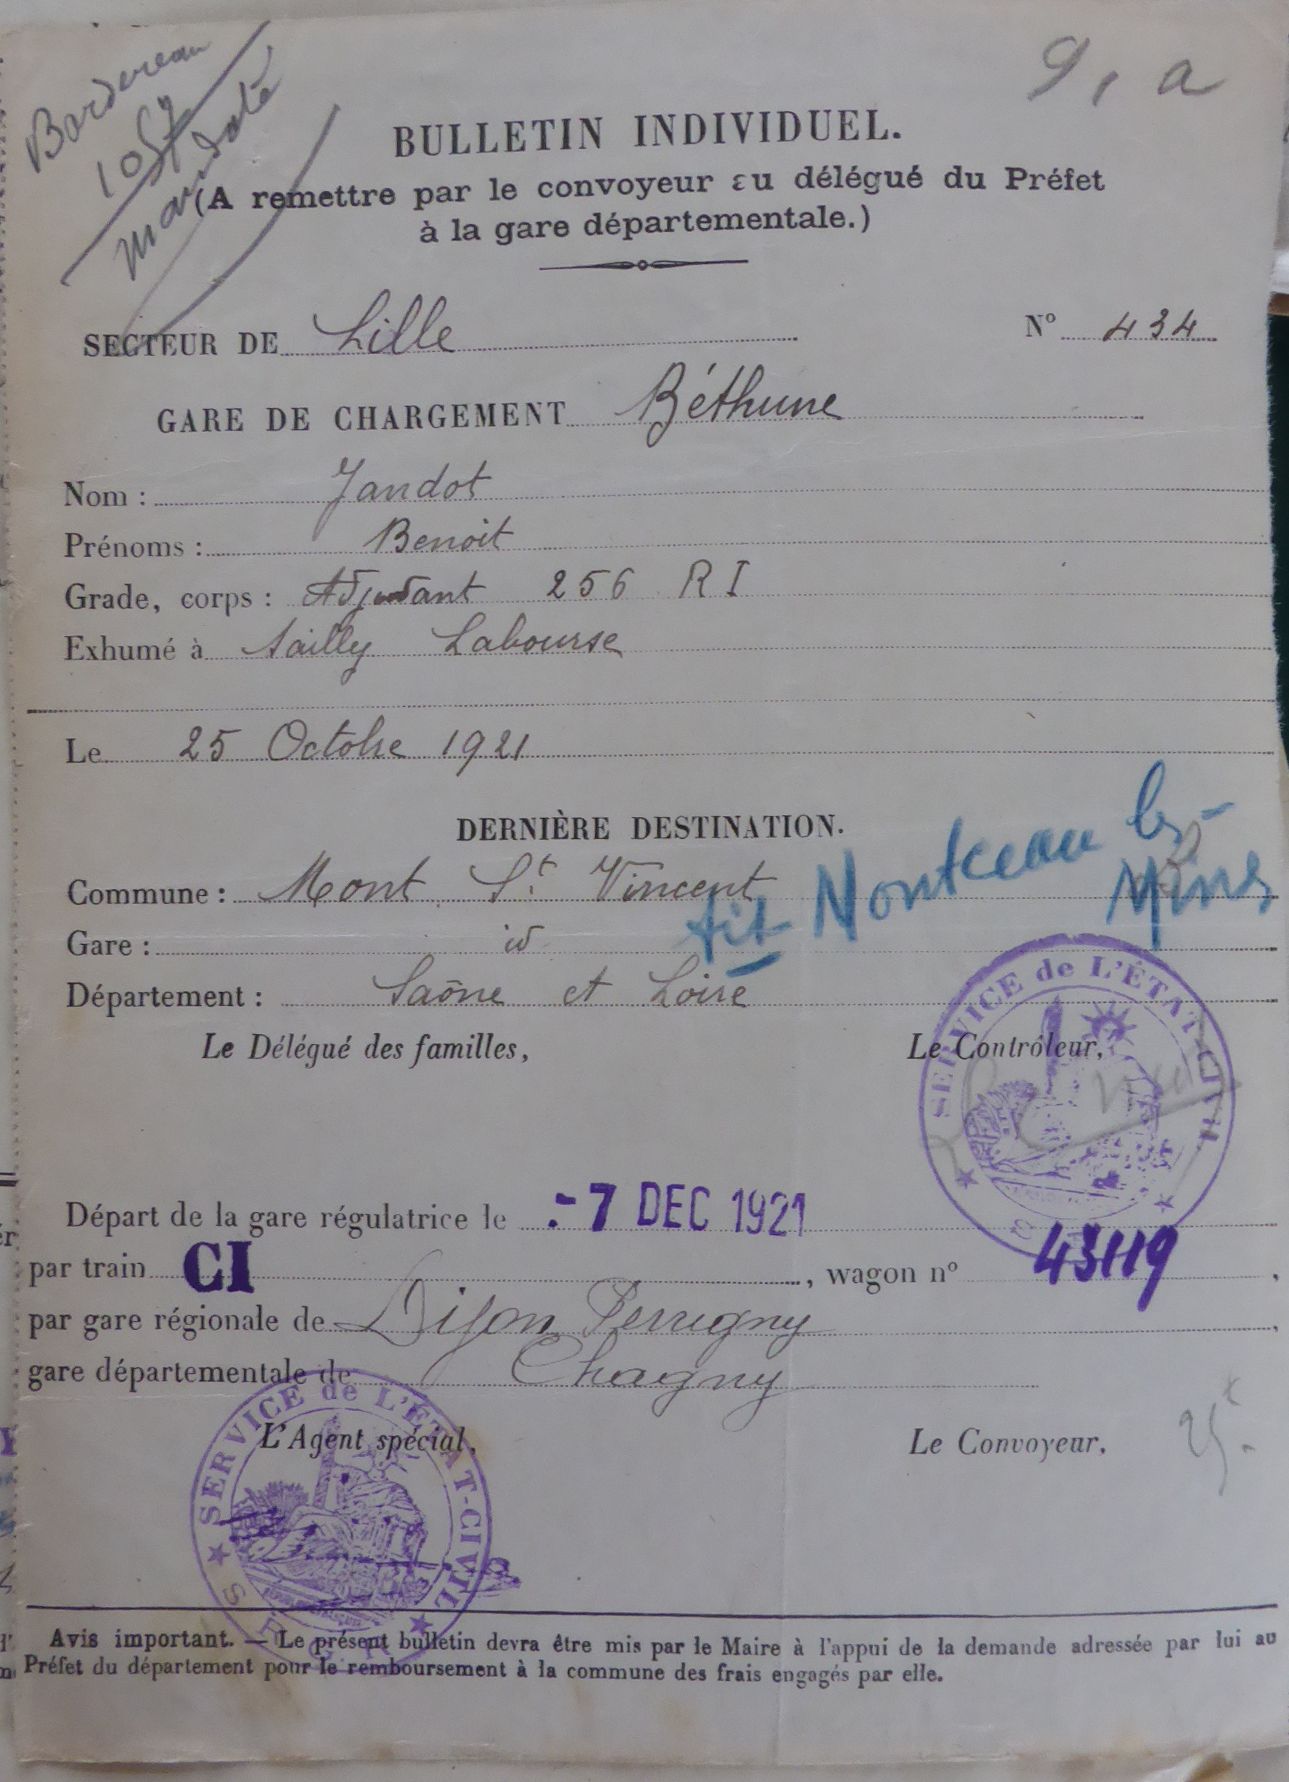 Bordereau
1057
mandaté
9, a
BULLETIN INDIVIDUEL.
(A remettre par le convoyeur au délégué du Préfet
à la gare départementale.)
SECTEUR DE Lille Nº 434
GARE DE CHARGEMENT Béthune
Nom : Jandot
Prénoms : Benoit
Grade, corps : Adjudant 256 R I
Exhumé à Sailly Labourse
Le 25 Octobre 1921
DERNIÈRE DESTINATION.
Commune : Mont St Vincent
Gare : id
Montceau les-
Mines
Département : Saône et Loire
Le Délégué des familles, Le Contrôleur,
SERVICE de L'ÉTAT-CIVIL
Départ de la gare régulatrice le - 7 DEC 1921
par train CI, wagon nº 43119,
par gare régionale de Dijon Perrigny,
gare départementale de Chagny
L'Agent spécial, Le Convoyeur,
SERVICE de L'ÉTAT-CIVIL
Avis important. — Le présent bulletin devra être mis par le Maire à l'appui de la demande adressée par lui au
Préfet du département pour le remboursement à la commune des frais engagés par elle.